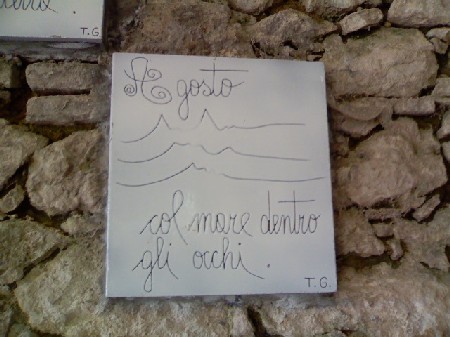 T.G.
Agosto
col mare dentro
gli occhi.
T.G.